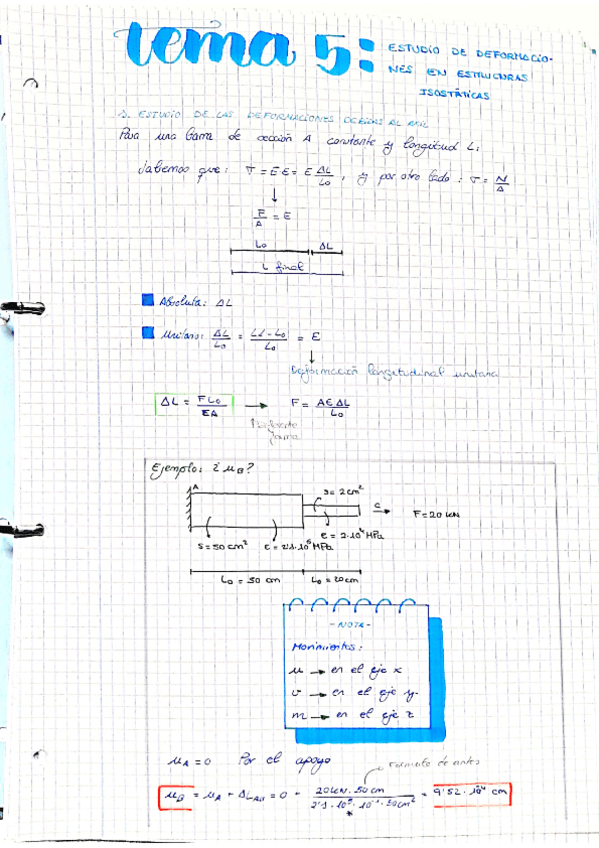 tema 5:
ESTUDIO DE DEFORMACIO-
NES EN ESTRUCTURAS
ISOSTÁTICAS
1. ESTUDIO DE LAS DEFORMACIONES DEBIDAS AL AXIL
Para una barra de sección A constante y longitud L:
Sabemos que: σ = E ε = E ΔL/L₀, y por otro lado: σ = N/A
↓
F/A = E
L₀ ΔL
L final
Absoluta: ΔL
Unitaria: ΔL/L₀ = (Lf - L₀)/L₀ = ε
↓
Deformación longitudinal unitaria
ΔL = F L₀/EA → F = AE ΔL/L₀
Ejemplo: ¿ u_B?
A
S = 2 cm²
C
F = 20 kN
S = 50 cm² E = 2'1·10⁵ MPa
E = 2·10⁴ MPa
L₀ = 50 cm L₀ = 20 cm
- NOTA -
Movimientos:
u → en el eje x
v → en el eje y
m → en el eje z
u_A = 0 Por el apoyo
Formula de antes
u_B = u_A + ΔL_AB = 0 + 20 kN · 50 cm / 2'1 · 10⁵ · 10⁻¹ · 50 cm² = 9'52 · 10⁻⁴ cm
*